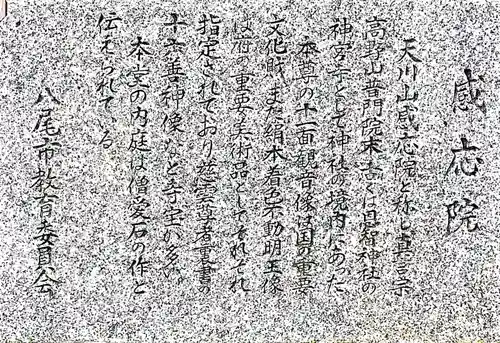 感応院
天川山感応院と称し真言宗
高野山普門院末 古くは恩智神社の
神宮寺として神社の境内にあった
本尊の十一面観音像は国の重要
文化財、また絹本着色不動明王像
は府の重要美術品としてそれぞれ
指定されており慈雲尊者裏書の
十六善神像など寺宝が多い。
本堂の内庭は僧愛石の作と
伝えられている
八尾市教育委員会